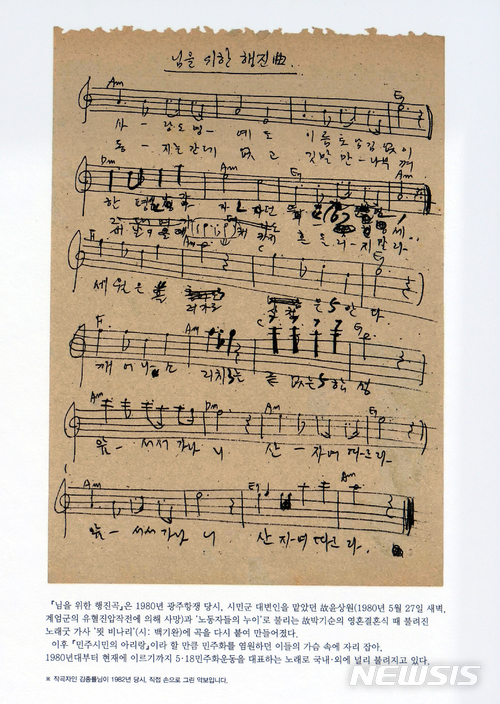 님을 위한 행진曲.
Am E7
사 - 랑도 명 - 예도 이름도 남김 없이
동 - 지는 간데 없고 깃발만 나부껴
Dm Am E7 Am
한 평생 나가자던 뜨거운 맹세
새 날이 올 때까지 흔들리지 말라
F C G
세월은 흘러가도 산천은 안다
F Am C E7
깨어나서 외치는 끝없는 함성
Am Dm Am E7
앞 - 서서 가나니 산 - 자여 따르라.
Am E7 Am
앞 - 서서 가나니 산 자여 따르라.
『님을 위한 행진곡』은 1980년 광주항쟁 당시, 시민군 대변인을 맡았던 故윤상원(1980년 5월 27일 새벽,
계엄군의 유혈진압작전에 의해 사망)과 '노동자들의 누이'로 불리는 故박기순의 영혼결혼식 때 불려진
노래굿 가사 '묏 비나리'(시: 백기완)에 곡을 다시 붙여 만들어졌다.
이후 『민주시민의 아리랑』이라 할 만큼 민주화를 염원하던 이들의 가슴 속에 자리 잡아,
1980년대부터 현재에 이르기까지 5·18민주화운동을 대표하는 노래로 국내·외에 널리 불려지고 있다.
※ 작곡자인 김종률님이 1982년 당시, 직접 손으로 그린 악보입니다.
NEWSIS